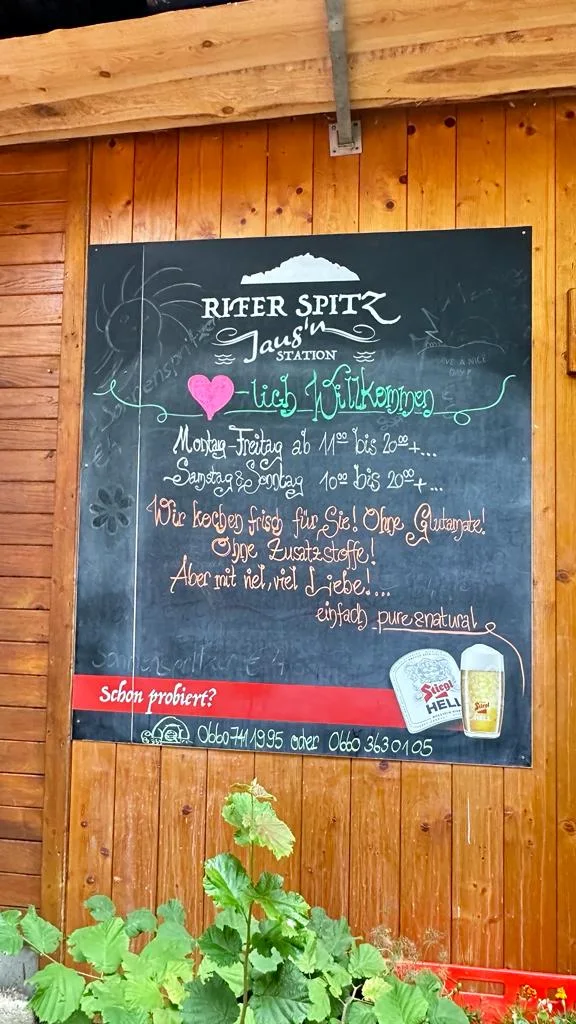 RIFER SPITZ
Jaus'n
STATION
HAVE A NICE
DAY!
-lich Willkommen
Montag-Freitag ab 11⁰⁰ bis 20⁰⁰+...
Samstag&Sonntag 10⁰⁰ bis 20⁰⁰+...
Wir kochen frisch für Sie! Ohne Glutamate!
Ohne Zusatzstoffe!
Aber mit viel, viel Liebe!....
einfach pure&natural
Sonnenspritzer
Sonnenspritzer € 4
Schon probiert?
Stiegl
HELL
Stiegl
HELL
0660 7411995 oder 0660 3630105